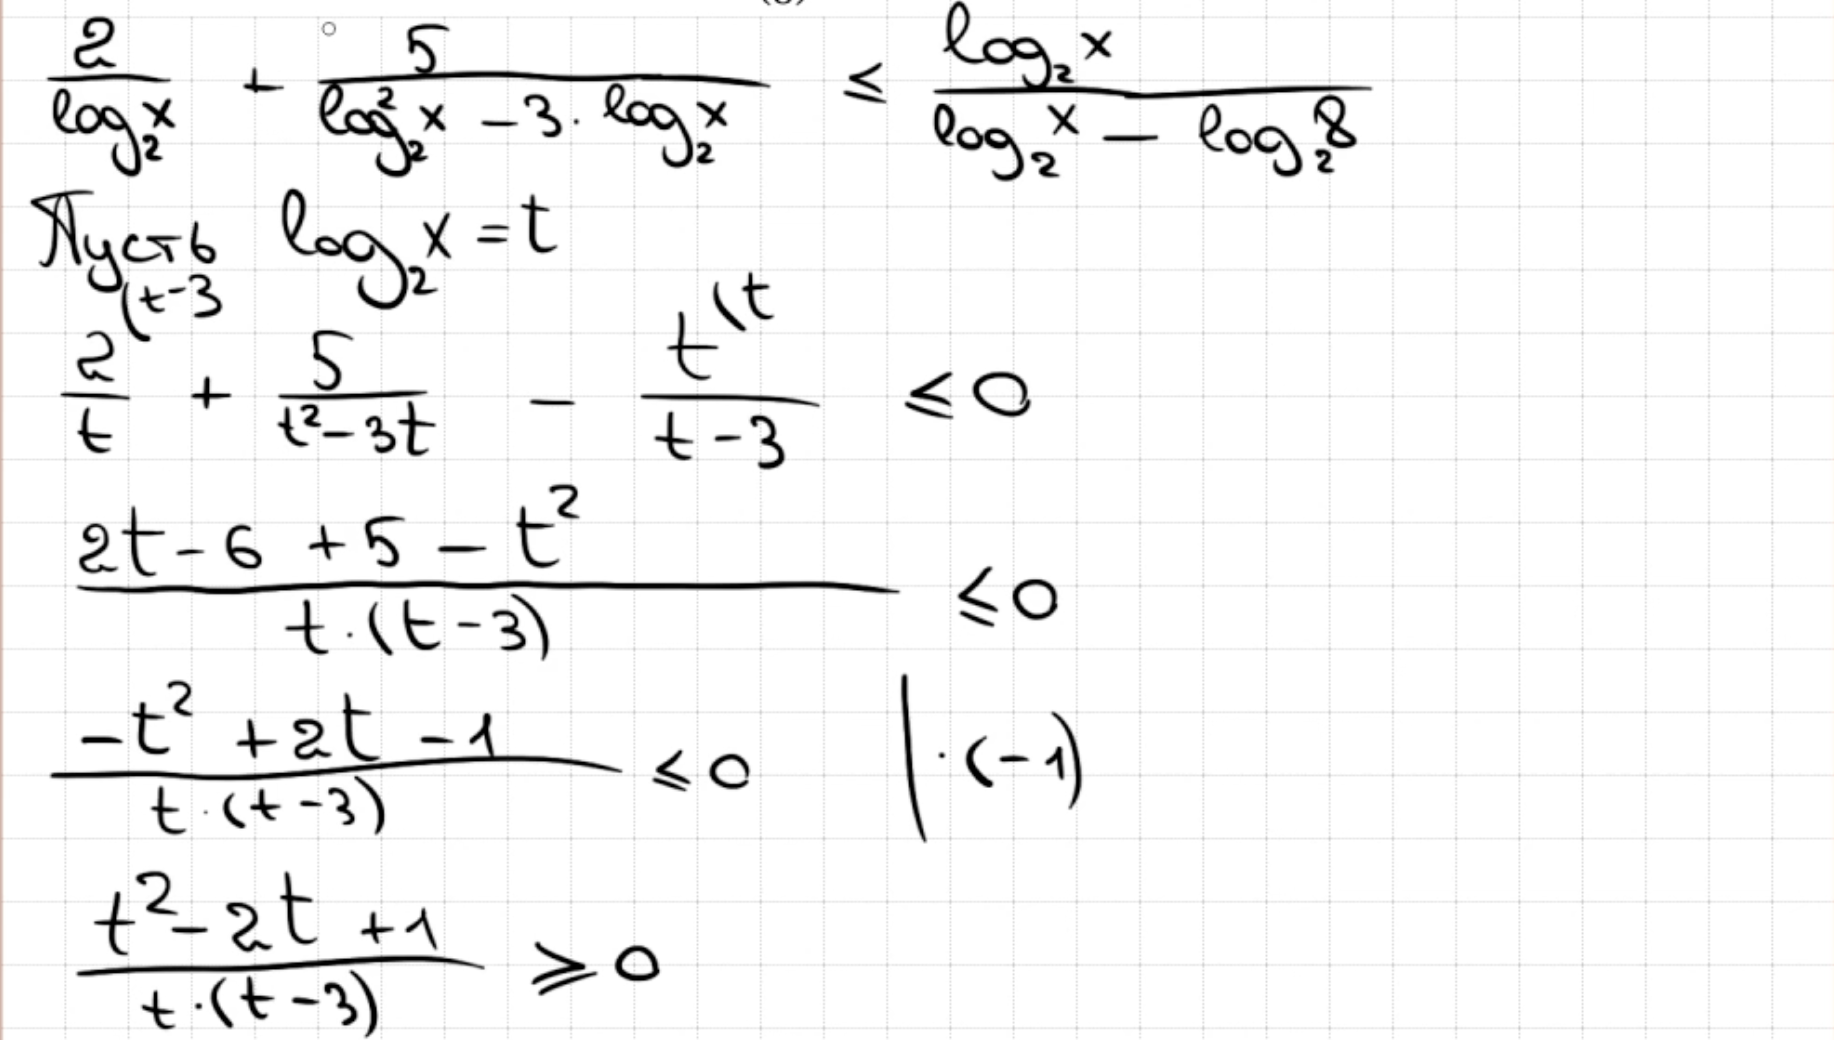 2/log₂x + 5/(log₂²x − 3·log₂x) ≤ log₂x/(log₂x − log₂8)
Пусть log₂x = t
(t-3 (t
2/t + 5/(t²−3t) − t/(t−3) ≤ 0
(2t−6+5−t²)/(t·(t−3)) ≤ 0
(−t²+2t−1)/(t·(t−3)) ≤ 0 | ·(−1)
(t²−2t+1)/(t·(t−3)) ≥ 0